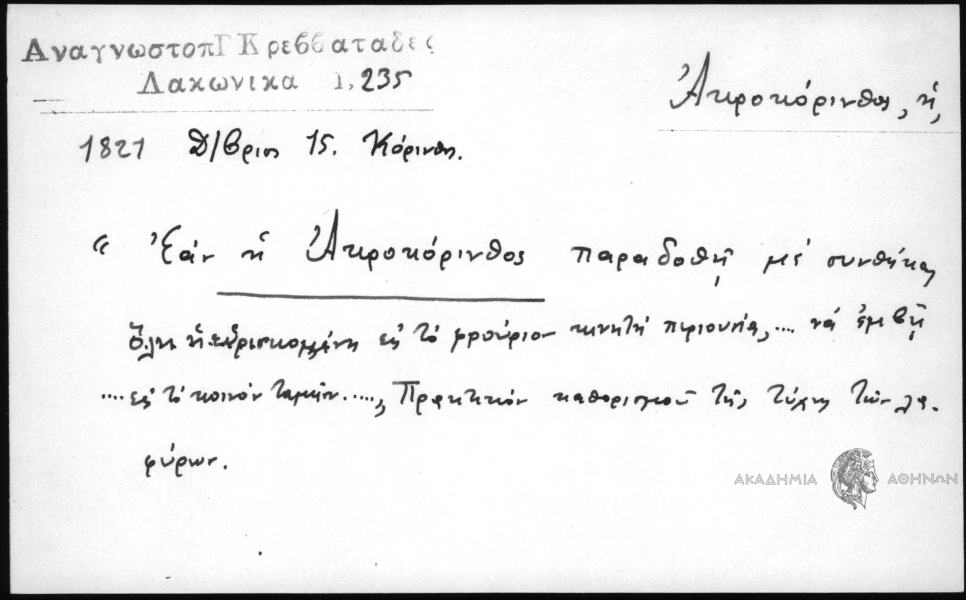 ΑναγνωστοπΓ Κρεββαταδες
Λακωνικα 1, 235
Ἀκροκόρινθος, ἡ,
1821 Δ/βριος 15. Κόρινθος.
“ Ἐὰν ἡ Ἀκροκόρινθος παραδοθῇ μὲ συνθήκας
ὅλη ἡ εὑρισκομένη εἰς τὸ φρούριον κινητὴ περιουσία, .... νὰ ἐμβῇ
.... εἰς τὸ κοινὸν ταμεῖον ...., Πρακτικὸν καθορισμοῦ τῆς τύχης τῶν λα-
φύρων.
ΑΚΑΔΗΜΙΑ ΑΘΗΝΩΝ